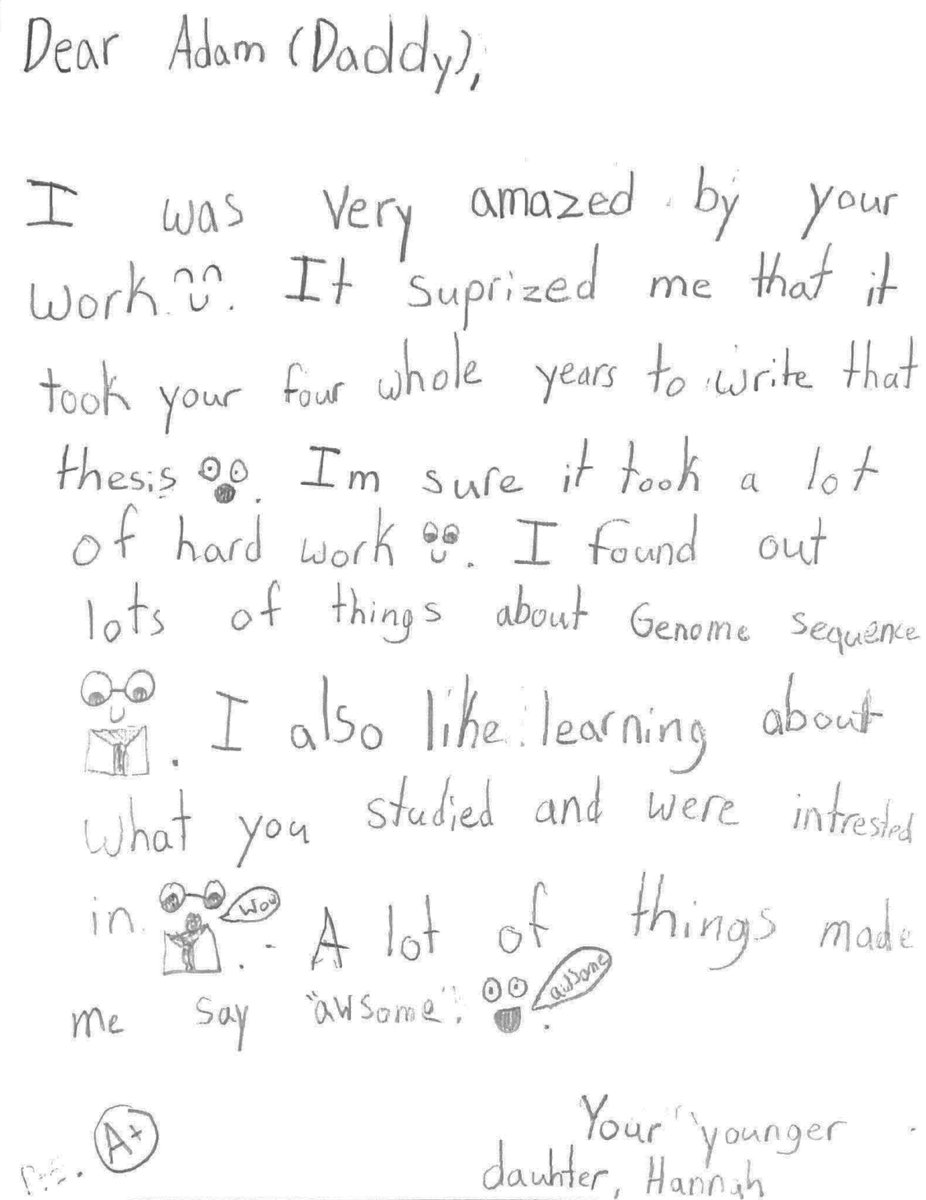 Dear Adam (Daddy),
I was very amazed by your
work. It suprized me that it
took your four whole years to write that
thesis. Im sure it took a lot
of hard work. I found out
lots of things about Genome sequence
. I also like learning about
what you studied and were intrested
in. Wow. A lot of things made
me say "awsome". awsome.
Your younger
A+
dauhter, Hannah